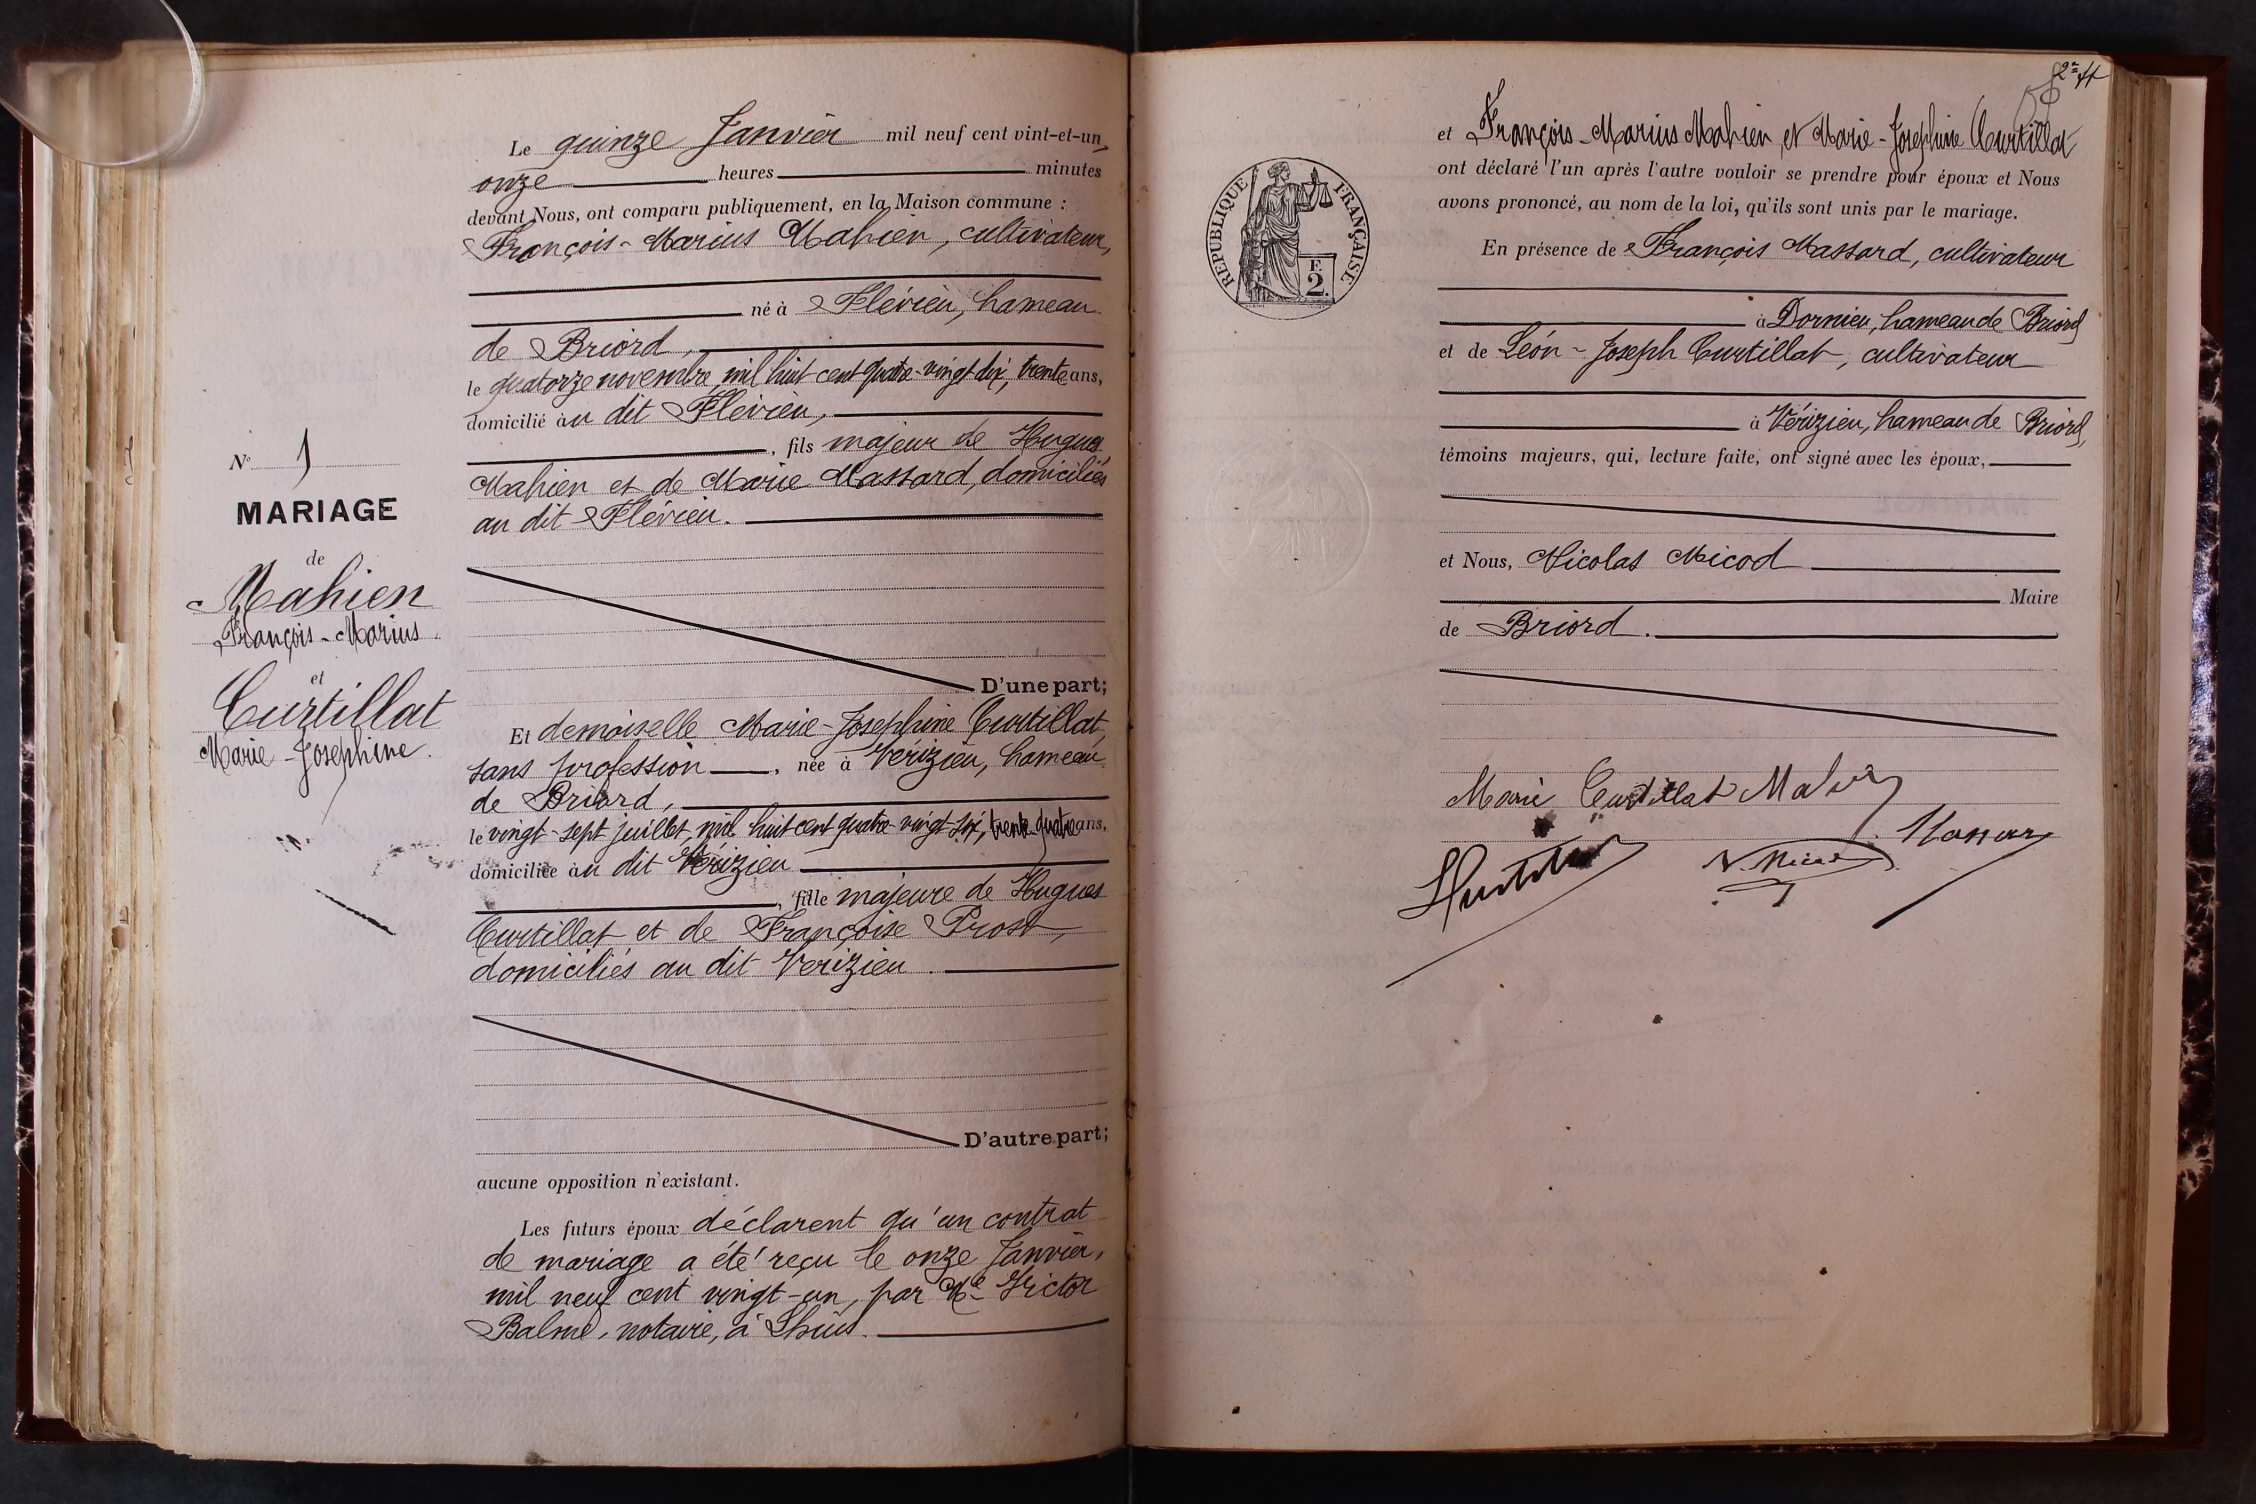 Le quinze Janvier mil neuf cent vint-et-un,
onze heures minutes
devant Nous, ont comparu publiquement, en la Maison commune :
François-Marius Mahien, cultivateur,
né à Flévieu, hameau
de Briord,
le quatorze novembre mil huit cent quatre-vingt dix, trente ans,
domicilié au dit Flévieu,
, fils majeur de Hugues
Mahien et de Marie Massard, domiciliés
au dit Flévieu.
D'une part;
N° 1
MARIAGE
de
Mahien
François-Marius
et
Curtillat
Marie-Josephine.
Et demoiselle Marie-Josephine Curtillat,
sans profession, née à Vérizieu, hameau
de Briord,
le vingt-sept juillet, mil huit cent quatre-vingt six, trente-quatre ans,
domiciliée au dit Vérizieu
, fille majeure de Hugues
Curtillat et de Françoise Prost,
domiciliés au dit Verizieu.
D'autre part;
aucune opposition n'existant.
Les futurs époux déclarent qu'un contrat
de mariage a été reçu le onze Janvier,
mil neuf cent vingt-un, par Me Victor
Balme, notaire, à Lhuis.
2e
RÉPUBLIQUE FRANÇAISE
F.
2.
et François-Marius Mahien et Marie-Josephine Curtillat
ont déclaré l'un après l'autre vouloir se prendre pour époux et Nous
avons prononcé, au nom de la loi, qu'ils sont unis par le mariage.
En présence de François Massard, cultivateur
à Dornieu, hameau de Briord
et de Léon-Joseph Curtillat, cultivateur
à Vérizieu, hameau de Briord,
témoins majeurs, qui, lecture faite, ont signé avec les époux,
et Nous, Nicolas Micod
Maire
de Briord.
Marie Curtillat
N. Micod